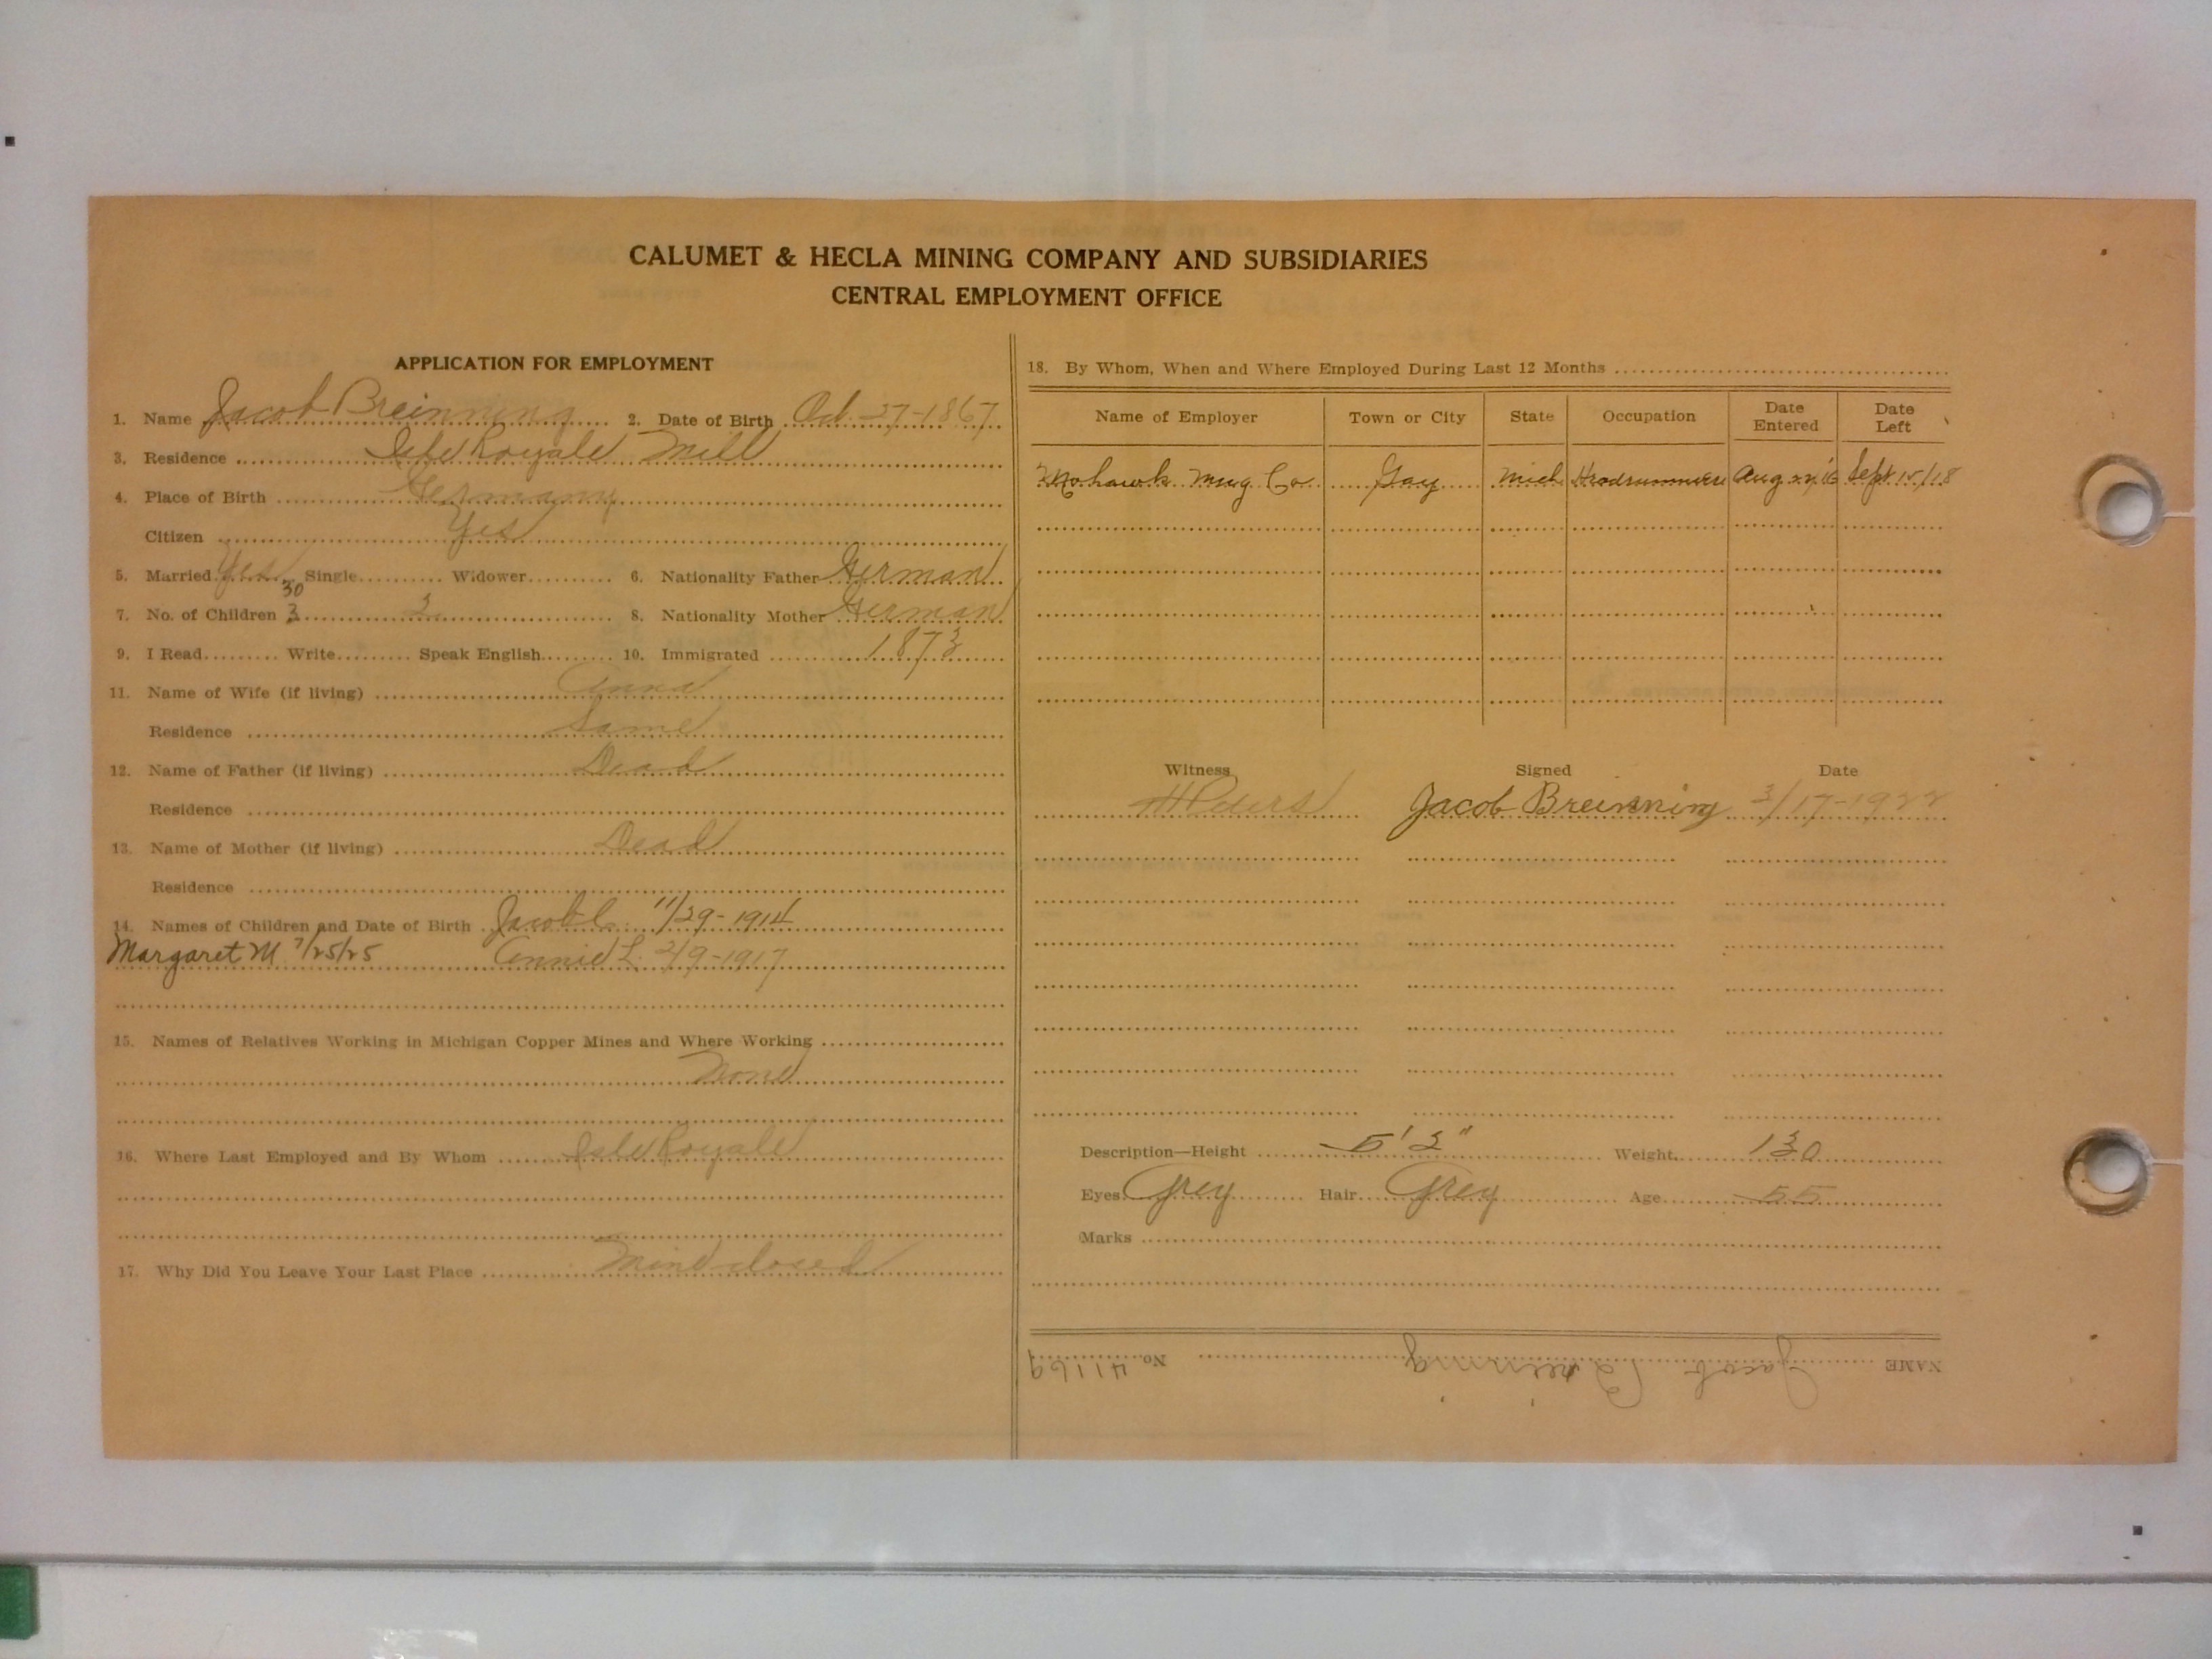 CALUMET & HECLA MINING COMPANY AND SUBSIDIARIES
CENTRAL EMPLOYMENT OFFICE
APPLICATION FOR EMPLOYMENT
1. Name Jacob Breinning 2. Date of Birth Oct. 27-1867
3. Residence Isle Royale Mill
4. Place of Birth Germany
Citizen Yes
5. Married Yes Single Widower 6. Nationality Father German
30
7. No. of Children 3 2 8. Nationality Mother German
9. I Read Write Speak English 10. Immigrated 1873
11. Name of Wife (if living) Anna
Residence Same
12. Name of Father (if living) Dead
Residence
13. Name of Mother (if living) Dead
Residence
14. Names of Children and Date of Birth Jacob C. 11/29-1914
Margaret M 7/25/25 Annie L. 2/9-1917
15. Names of Relatives Working in Michigan Copper Mines and Where Working
None
16. Where Last Employed and By Whom Isle Royale
17. Why Did You Leave Your Last Place Mine closed
18. By Whom, When and Where Employed During Last 12 Months
Name of Employer Town or City State Occupation Date Entered Date Left
Mohawk Mng Co. Gay Mich Aug 22,'16 Sept 15/18
Witness Signed Date
Jacob Breinning 3/17-1922
Description—Height 5' 2" Weight 130
Eyes Grey Hair Grey Age 55
Marks
NAME Jacob Breinning No. 41169